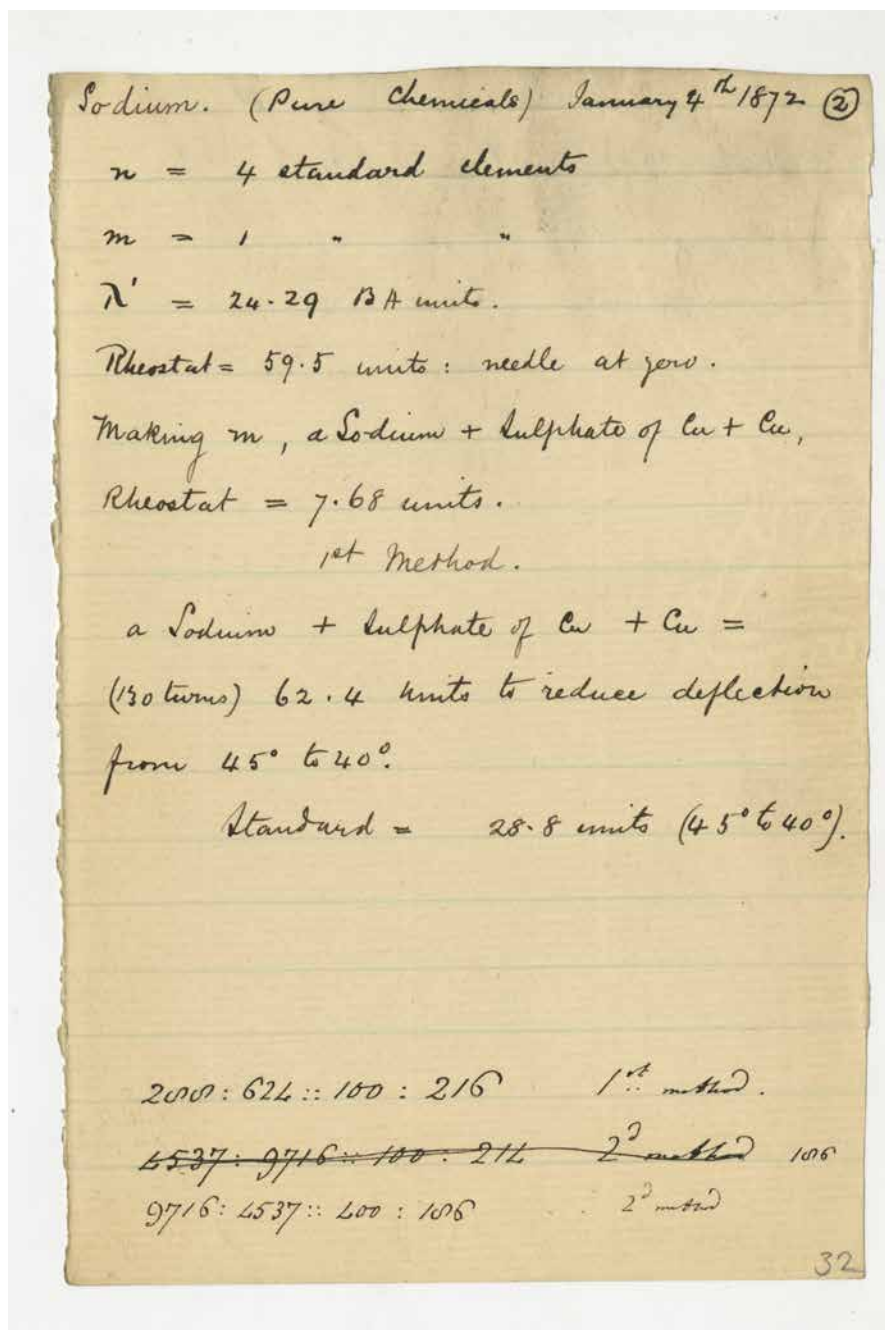 Sodium. (Pure Chemicals) January 4th 1872 ②
n = 4 standard elements
m = 1 " "
λ' = 24.29 BA units.
Rheostat = 59.5 units : needle at zero.
Making m, a Sodium + Sulphate of Cu + Cu,
Rheostat = 7.68 units.
1st Method.
a Sodium + Sulphate of Cu + Cu =
(130 turns) 62.4 units to reduce deflection
from 45° to 40°.
Standard = 28.8 units (45° to 40°).
288 : 624 :: 100 : 216 1st method.
4537 : 9716 :: 100 : 214 2d method 186
9716 : 4537 :: 400 : 186 2d method
32